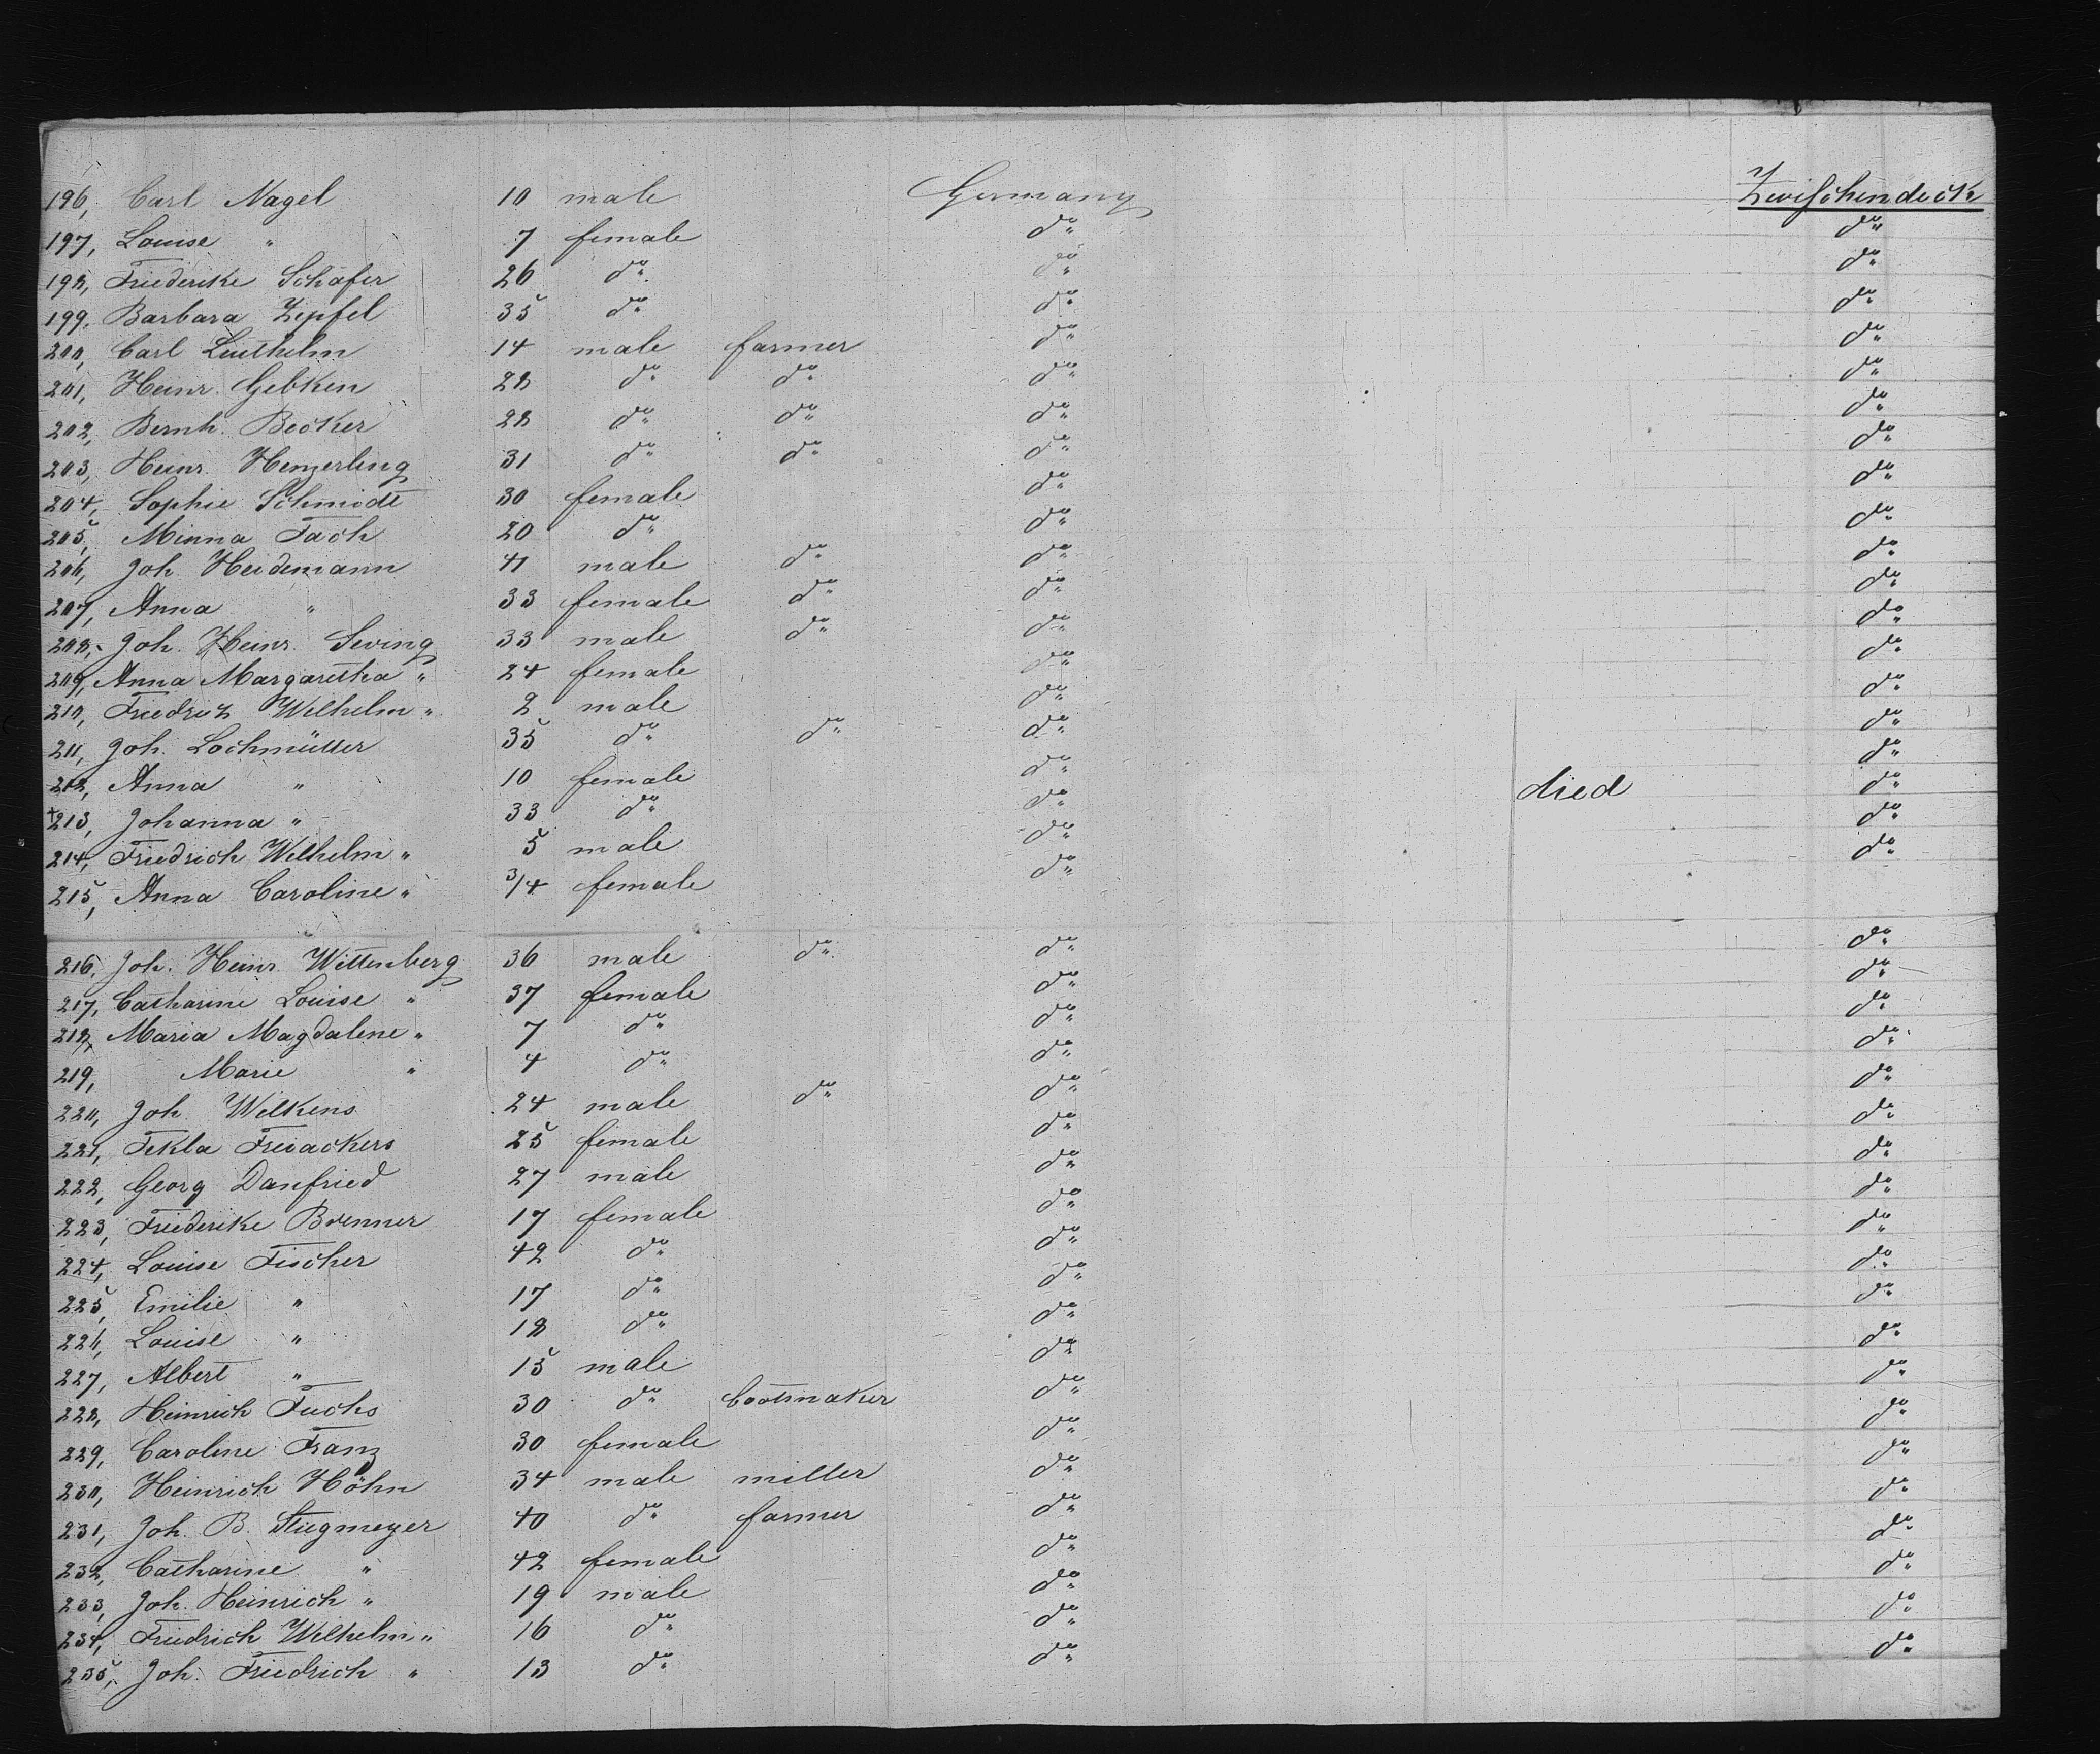 196, Carl Nagel 10 male Germany Zwischendeck
197, Louise " 7 female do do
198, Friederike Schäfer 26 do do do
199, Barbara Zepfel 35 do do do
200, Carl Liethelm 14 male farmer do do
201, Heinr. Gebken 28 do do do do
202, Bernh. Becker 28 do do do do
203, Heinr. Henzerling 31 do do do do
204, Sophie Schmidt 30 female do do
205, Minna Fach 20 do do do
206, Joh. Heidemann 41 male do do do
207, Anna " 33 female do do do
208, Joh. Heinr. Sewing 33 male do do do
209, Anna Margaretha " 24 female do do
210, Friedrich Wilhelm " 2 male do do
211, Joh. Lochmüller 35 do do do do
212, Anna " 10 female do do
+213, Johanna " 33 do do died do
214, Friedrich Wilhelm " 5 male do do
215, Anna Caroline " 3/4 female do do
216, Joh. Heinr. Wittenberg 36 male do do do
217, Catharine Louise " 37 female do do
218, Maria Magdalene " 7 do do do
219, Marie " 4 do do do
220, Joh. Wilkens 24 male do do do
221, Tekla Freiackers 25 female do do
222, Georg Danfried 27 male do do
223, Friederike Brenner 17 female do do
224, Louise Fischer 42 do do do
225, Emilie " 17 do do do
226, Louise " 18 do do do
227, Albert " 15 male do do
228, Heinrich Fuchs 30 do bootmaker do do
229, Caroline Franz 30 female do do
230, Heinrich Höhn 34 male miller do do
231, Joh. B. Stiegmeyer 40 do farmer do do
232, Catharine " 42 female do do
233, Joh. Heinrich " 19 male do do
234, Friedrich Wilhelm " 16 do do do
235, Joh. Friedrich " 13 do do do